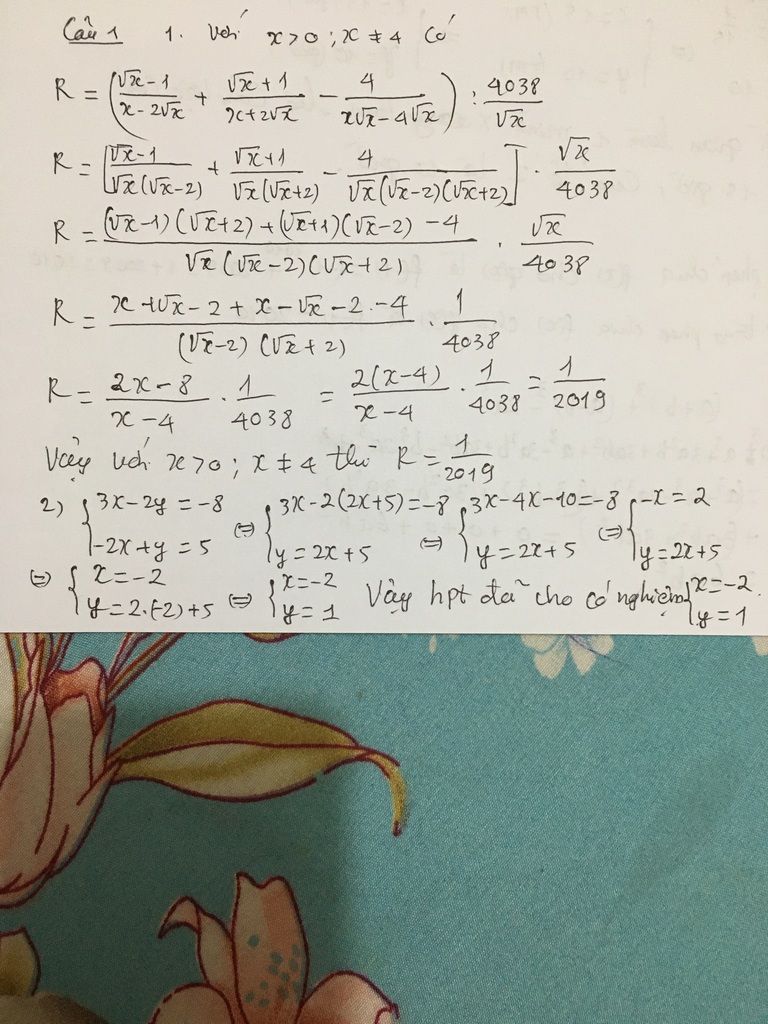 Câu 1 1. Với x>0 ; x ≠ 4 có
R = (√x-1/x-2√x + √x+1/x+2√x - 4/x√x-4√x) : 4038/√x
R = [√x-1/√x(√x-2) + √x+1/√x(√x+2) - 4/√x(√x-2)(√x+2)] . √x/4038
R = (√x-1)(√x+2)+(√x+1)(√x-2)-4/√x(√x-2)(√x+2) . √x/4038
R = x+√x-2+x-√x-2-4/(√x-2)(√x+2) . 1/4038
R = 2x-8/x-4 . 1/4038 = 2(x-4)/x-4 . 1/4038 = 1/2019
Vậy với x>0 ; x ≠ 4 thì R = 1/2019
2) { 3x-2y = -8 ; -2x+y = 5 ⇔ { 3x-2(2x+5)=-8 ; y=2x+5 ⇔ { 3x-4x-10=-8 ; y=2x+5 ⇔ { -x=2 ; y=2x+5
⇔ { x=-2 ; y=2.(-2)+5 ⇔ { x=-2 ; y=1 Vậy hpt đã cho có nghiệm { x=-2 ; y=1